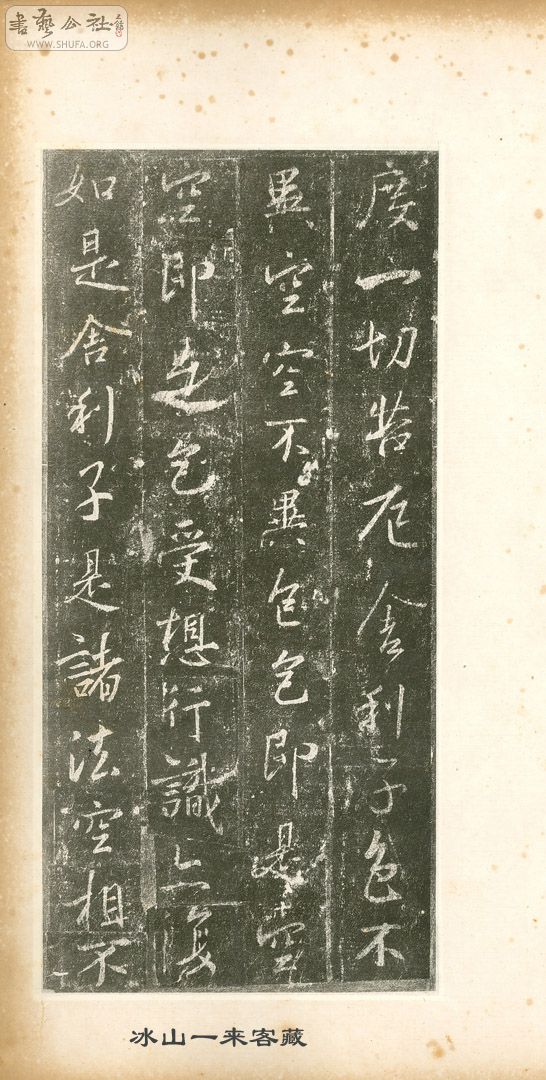 書藝公社
WWW.SHUFA.ORG
度一切苦厄舍利子色不
異空空不異色色即是空
空即是色受想行識亦復
如是舍利子是諸法空相不
冰山一来客藏